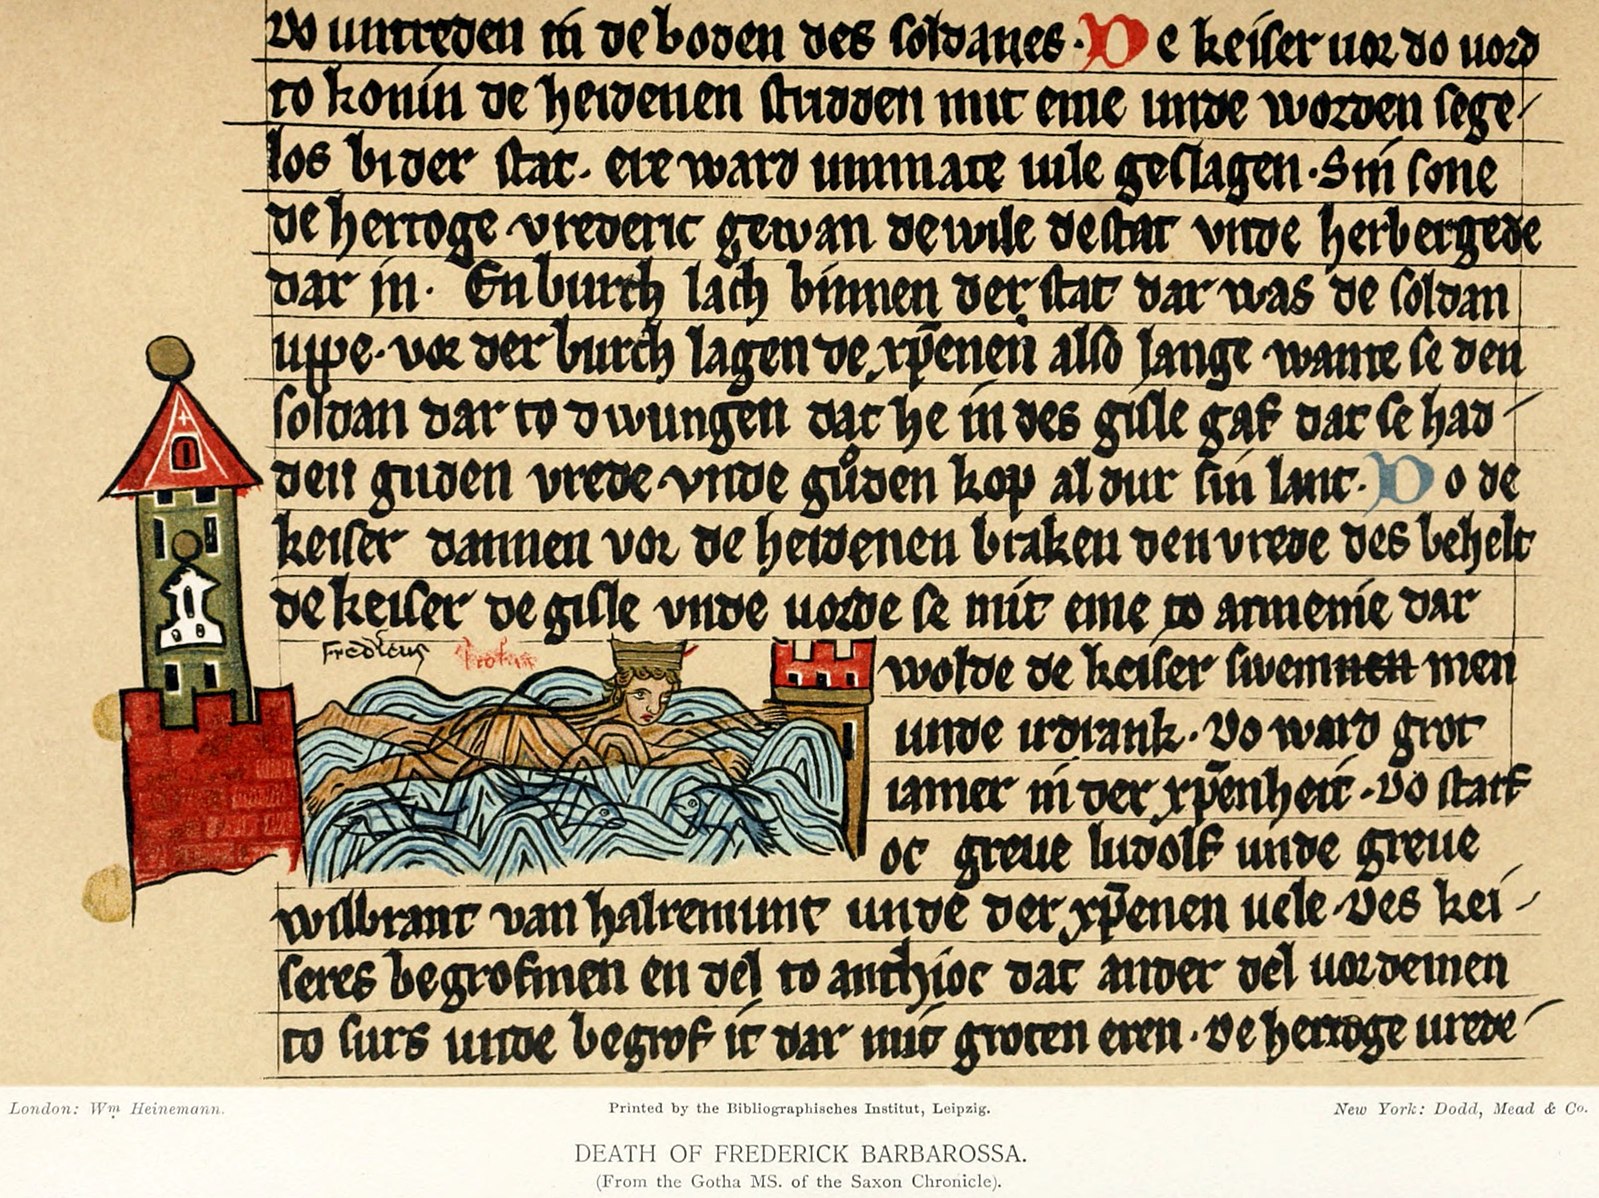 vv untreden in de boden des soldanes · De keiser vor do vord
to konin de heidenen studden mit eme unde worden sege
los bi der stat · ere ward ummate uile geslagen · Sin sone
de hertoge vrederic gewan de wile de stat vnde herbergede
dar in · En burch lach binnen der stat dar was de soldan
uppe · vor der burch lagen de xp̄enen also lange wante se den
soldan dar to dwungen dat he in des gisle gaf dat se had
den guden vrede vnde gůden kop al dur sin lant · Do de
keiser dannen vor de heidenen braken den vrede des behelt
de keiser de gisle vnde uorde se mit eme to armenie dar
Fredicus
wolde de keiser swemmen men
unde irdrank · Do ward grot
iamer in der xp̄enheit · Do starf
oc greue ludolf unde greue
wilbrant van halremunt unde der xp̄enen uele · Des kei
seres begrofmen en del to anthioc dat ander del uordemen
to surs unde begrof it dar mit groten eren · De hertoge urede
London: Wm. Heinemann.
Printed by the Bibliographisches Institut, Leipzig.
New York: Dodd, Mead & Co.
DEATH OF FREDERICK BARBAROSSA.
(From the Gotha MS. of the Saxon Chronicle).